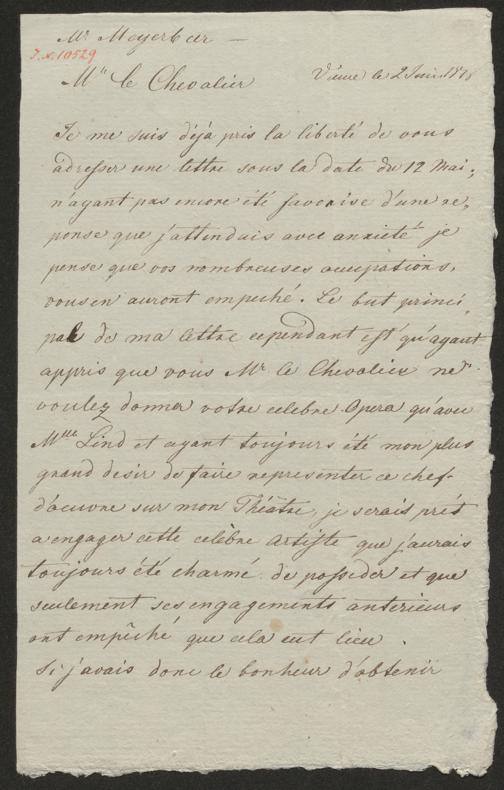 Mr Meyerbeer —
J.N. 10529
Mr le Chevalier
Vienne le 2 Juin
Je me suis déjà pris la liberté de vous
adresser une lettre sous la date du 12 Mai;
n'ayant pas encore été favorisé d'une re,
ponse que j'attendais avec anxieté je
pense que vos nombreuses occupations,
vous en auront empeché. Le but princi,
pale de ma lettre cependant est qu'ayant
appris que vous Mr le Chevalier ne
voulez donner votre celebre Opera qu'avec
Mlle Lind et ayant toujours été mon plus
grand desir de faire representer ce chef-
d'oeuvre sur mon Théatre, je serais prét
a engager cette celèbre Artiste que j'aurais
toujours été charmé de posseder et que
seulement ses engagements anterieurs
ont empêché que cela eut lieu.
Si j'avais donc le bonheur d'obtenir